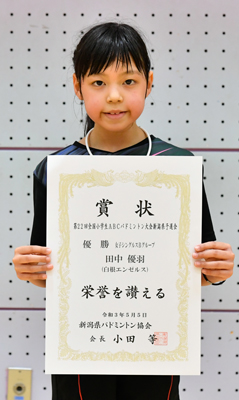 賞状
第22回全国小学生ABCバドミントン大会新潟県予選会
優勝 女子シングルスBグループ
田中 優羽
(白根エンゼルス)
栄誉を讃える
令和3年5月5日
新潟県バドミントン協会
会長 小田 等